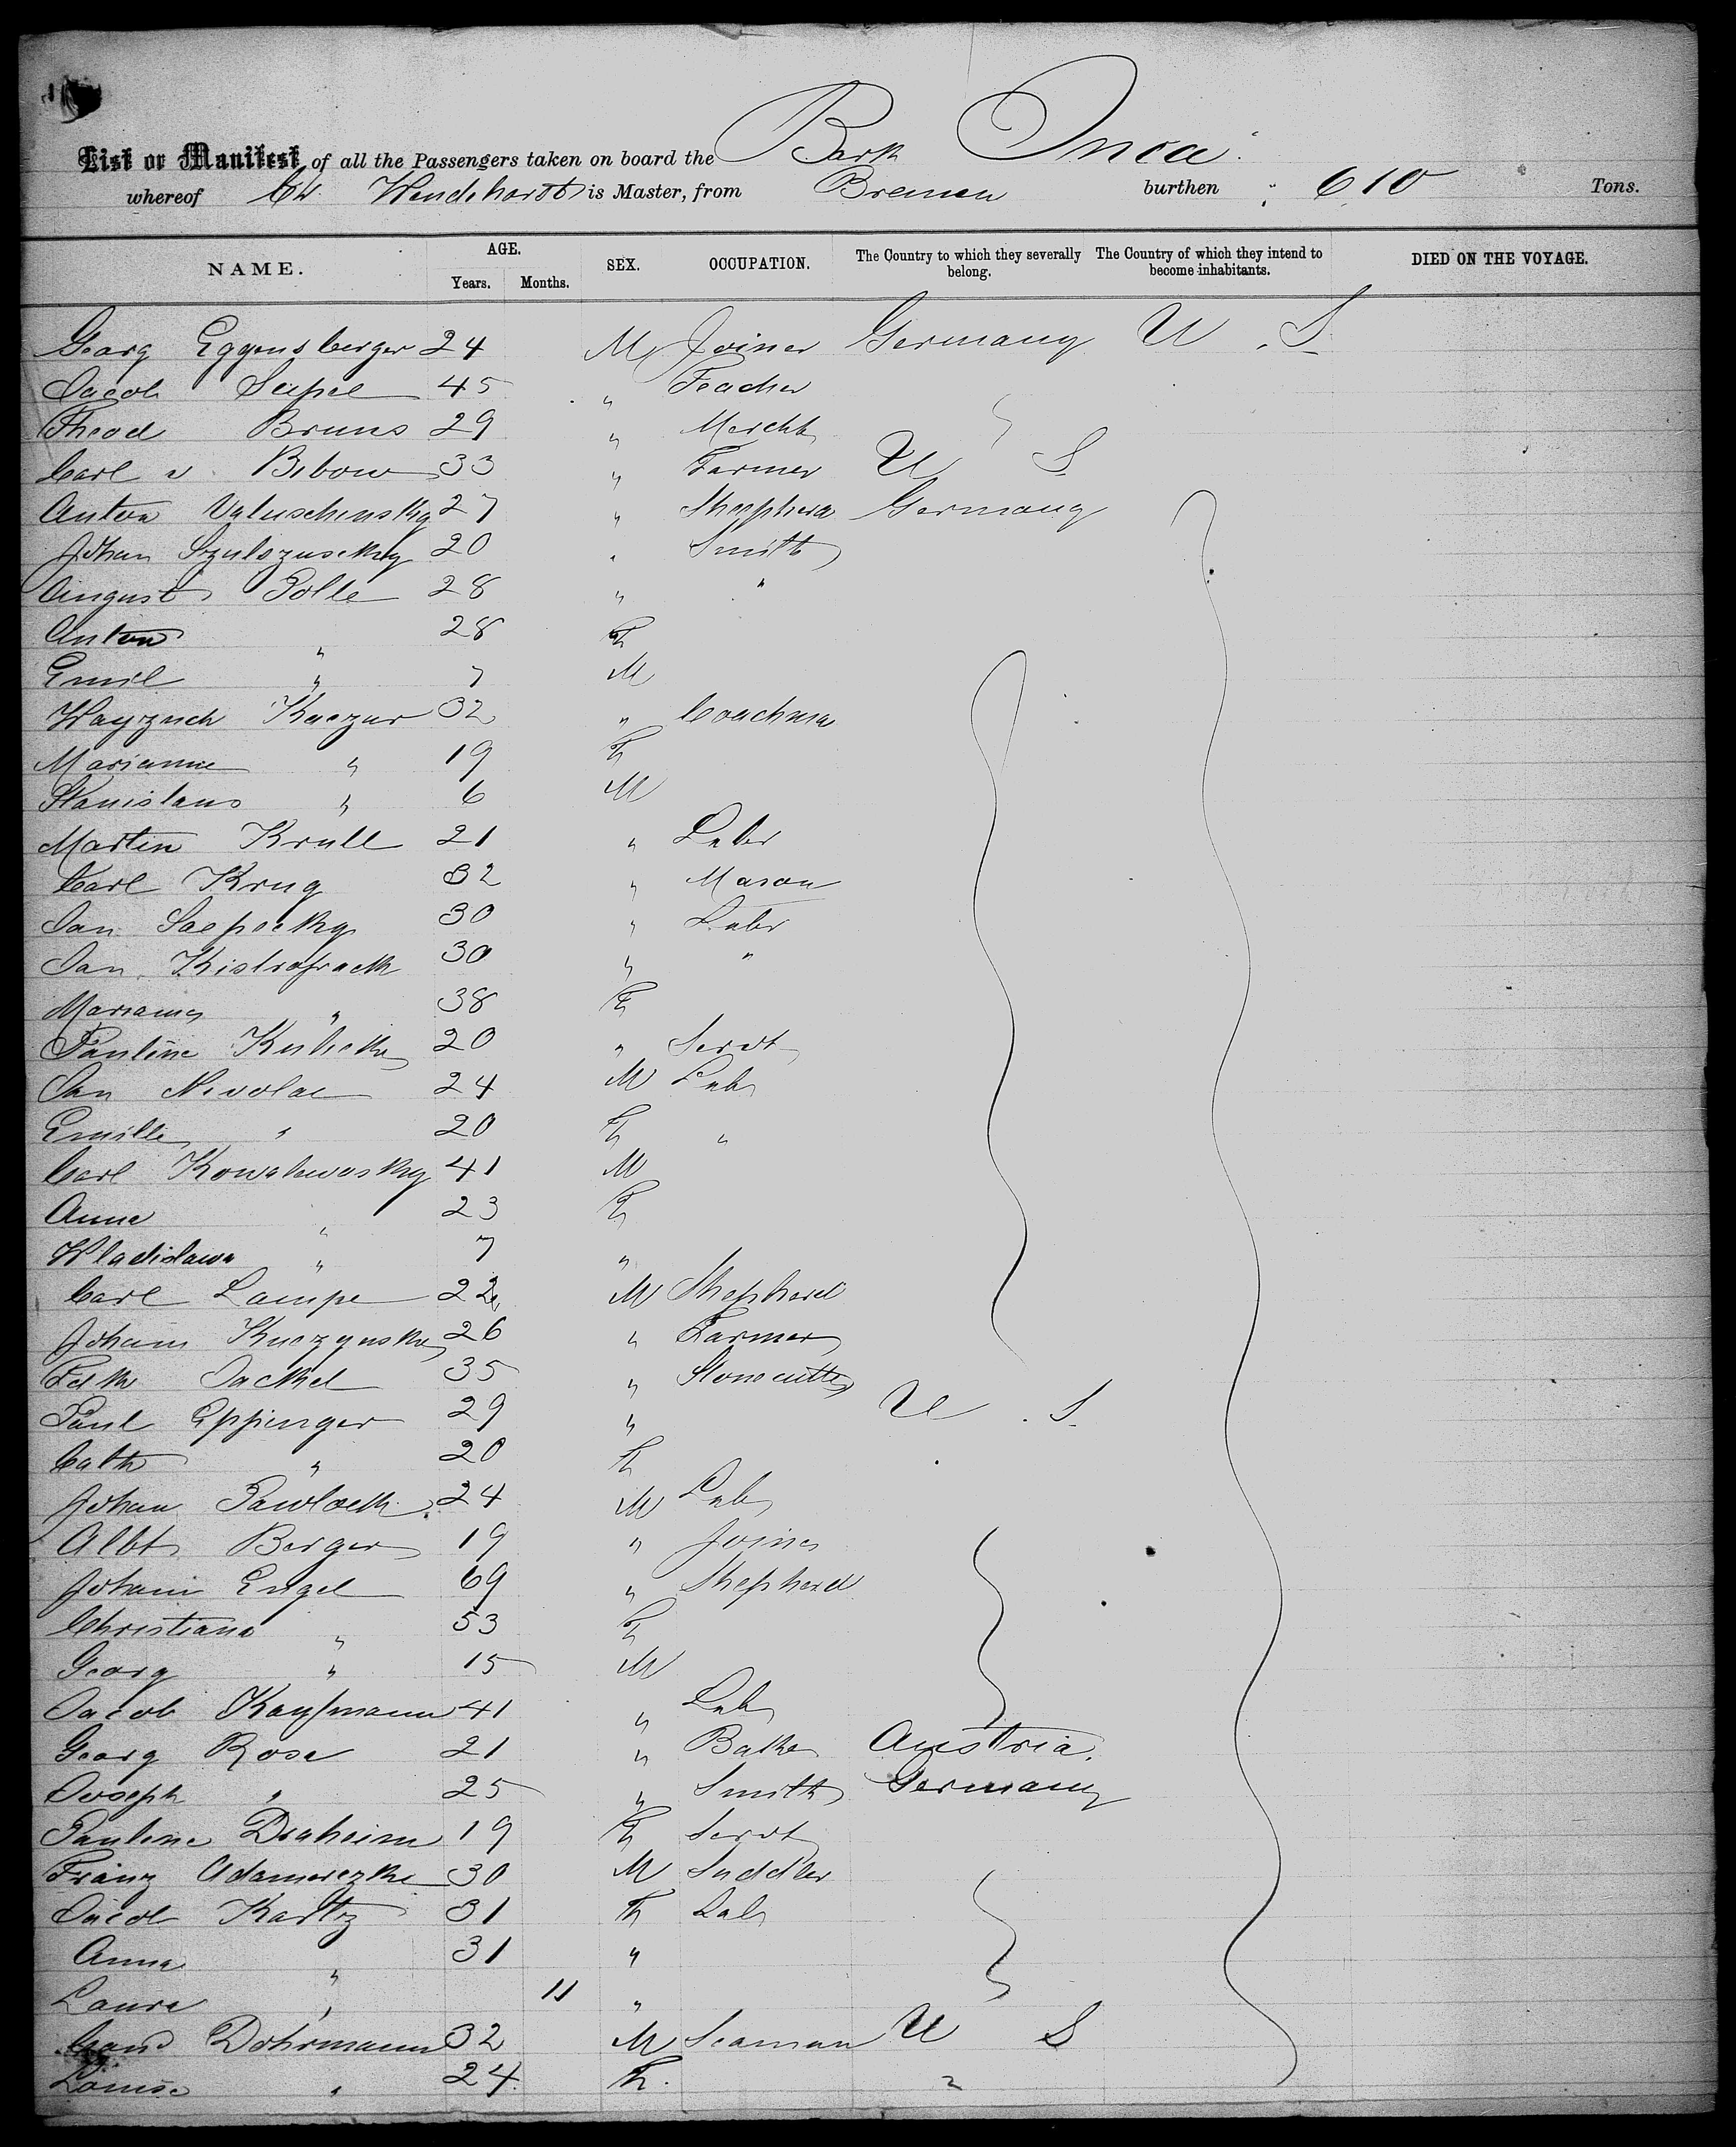 List or Manifest of all the Passengers taken on board the Bark Inca
whereof Ch. Wendehorst is Master, from Bremen burthen 610 Tons.
NAME. AGE. Years. Months. SEX. OCCUPATION. The Country to which they severally belong. The Country of which they intend to become inhabitants. DIED ON THE VOYAGE.
Georg Eggensberger 24 M Joiner Germany U.S.
Jacob 45 " Teacher
Theod Bruns 29 " Mercht
Carl v. Bibow 33 " Farmer U S
Anton Valuschinsky 27 " Shepherd Germany
Johan 20 " Smith
August Polle 28 " "
Anton " 28 F
Emil " 7 M
Kaczur 32 " Coachma
Marianne " 19 F
Stanislaus " 6 M
Martin Krull 21 " Labr
Carl Krug 32 " Mason
Jan 30 " Labr
Jan 30 " "
Marianna " 38 F
Pauline 20 " Servt
Jan 24 M Lab
Emilie " 20 F "
Carl Kowalewosky 41 M
Anna " 23 F
Wladislawa " 7 "
Carl Lampe 22 M Shepherd
Johann Kuczynski 26 " Farmer
Jackel 35 " Stonecutter
Paul Eppinger 29 " U.S.
Cath " 20 F
Johan Pawlack 24 M Lab
Albt Berger 19 " Joiner
Johann Engel 69 " Shepherd
Christiana " 53 F
Georg " 15 M
Jacob Kaufmann 41 " Lab
Georg Rose 21 " Baker Austria.
Joseph " 25 " Smith Germany
Pauline Draheim 19 F Servt
Franz 30 M Saddler
Jacob Kartz 31 F Lab
Anna " 31 "
Laura " 11 "
Dohrmann 32 M Seaman U S
Louise " 24 F. "